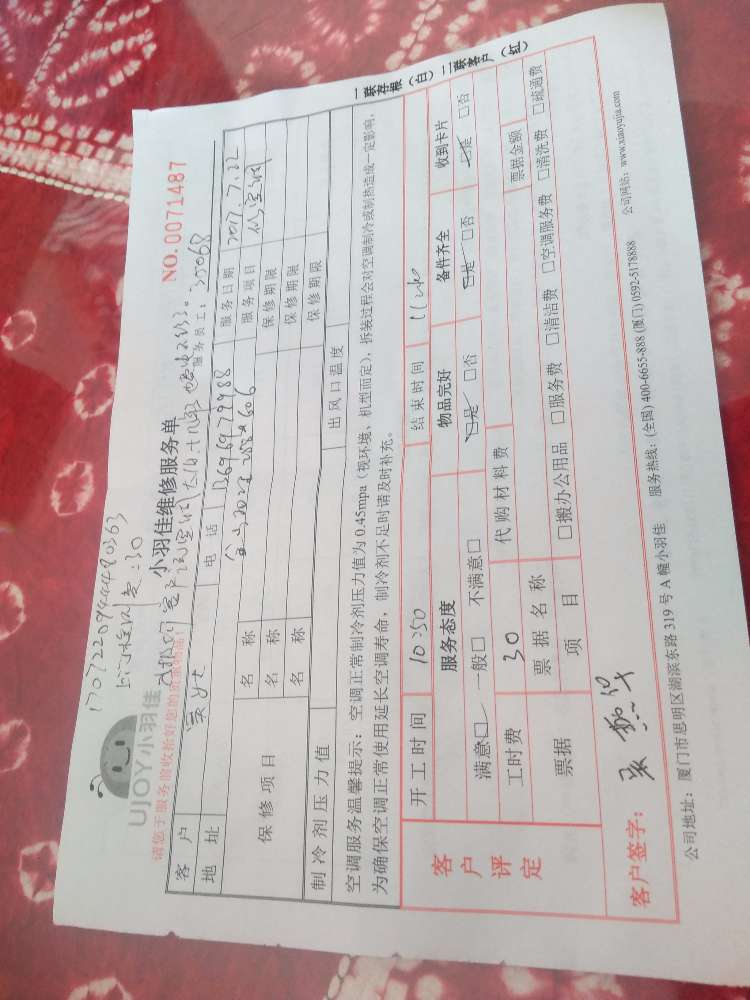 170722094448 0363
上门检测费:30
UJOY小羽佳
小羽佳维修服务单
NO.0071487
请您于服务前收拾好您的贵重物品!
服务员工:30068
客户
电话 13696979988
服务日期 2017.7.22
地址
服务项目 修空调
保修项目
名称
保修期限
名称
保修期限
名称
保修期限
制冷剂压力值
出风口温度
空调服务温馨提示:空调正常制冷剂压力值为0.45mpa(视环境、机型而定),拆装过程会对空调制冷或制热造成一定影响,
为确保空调正常使用延长空调寿命,制冷剂不足时请及时补充。
一联存根(白)二联客户(红)
客户评定
开工时间 10:50
结束时间
服务态度
物品完好
备件齐全
收到卡片
满意□ 一般□ 不满意□
□是 □否
□是 □否
□是 □否
工时费 30
代购材料费
票据
票据名称
票据金额
项目
□搬办公用品 □服务费 □清洁费 □空调服务费 □清洗费 □疏通费
客户签字:
公司地址:厦门市思明区湖滨东路319号A幢小羽佳 服务热线:(全国)400-6655-888(厦门)0592-5178888 公司网站:www.xiaoyujia.com